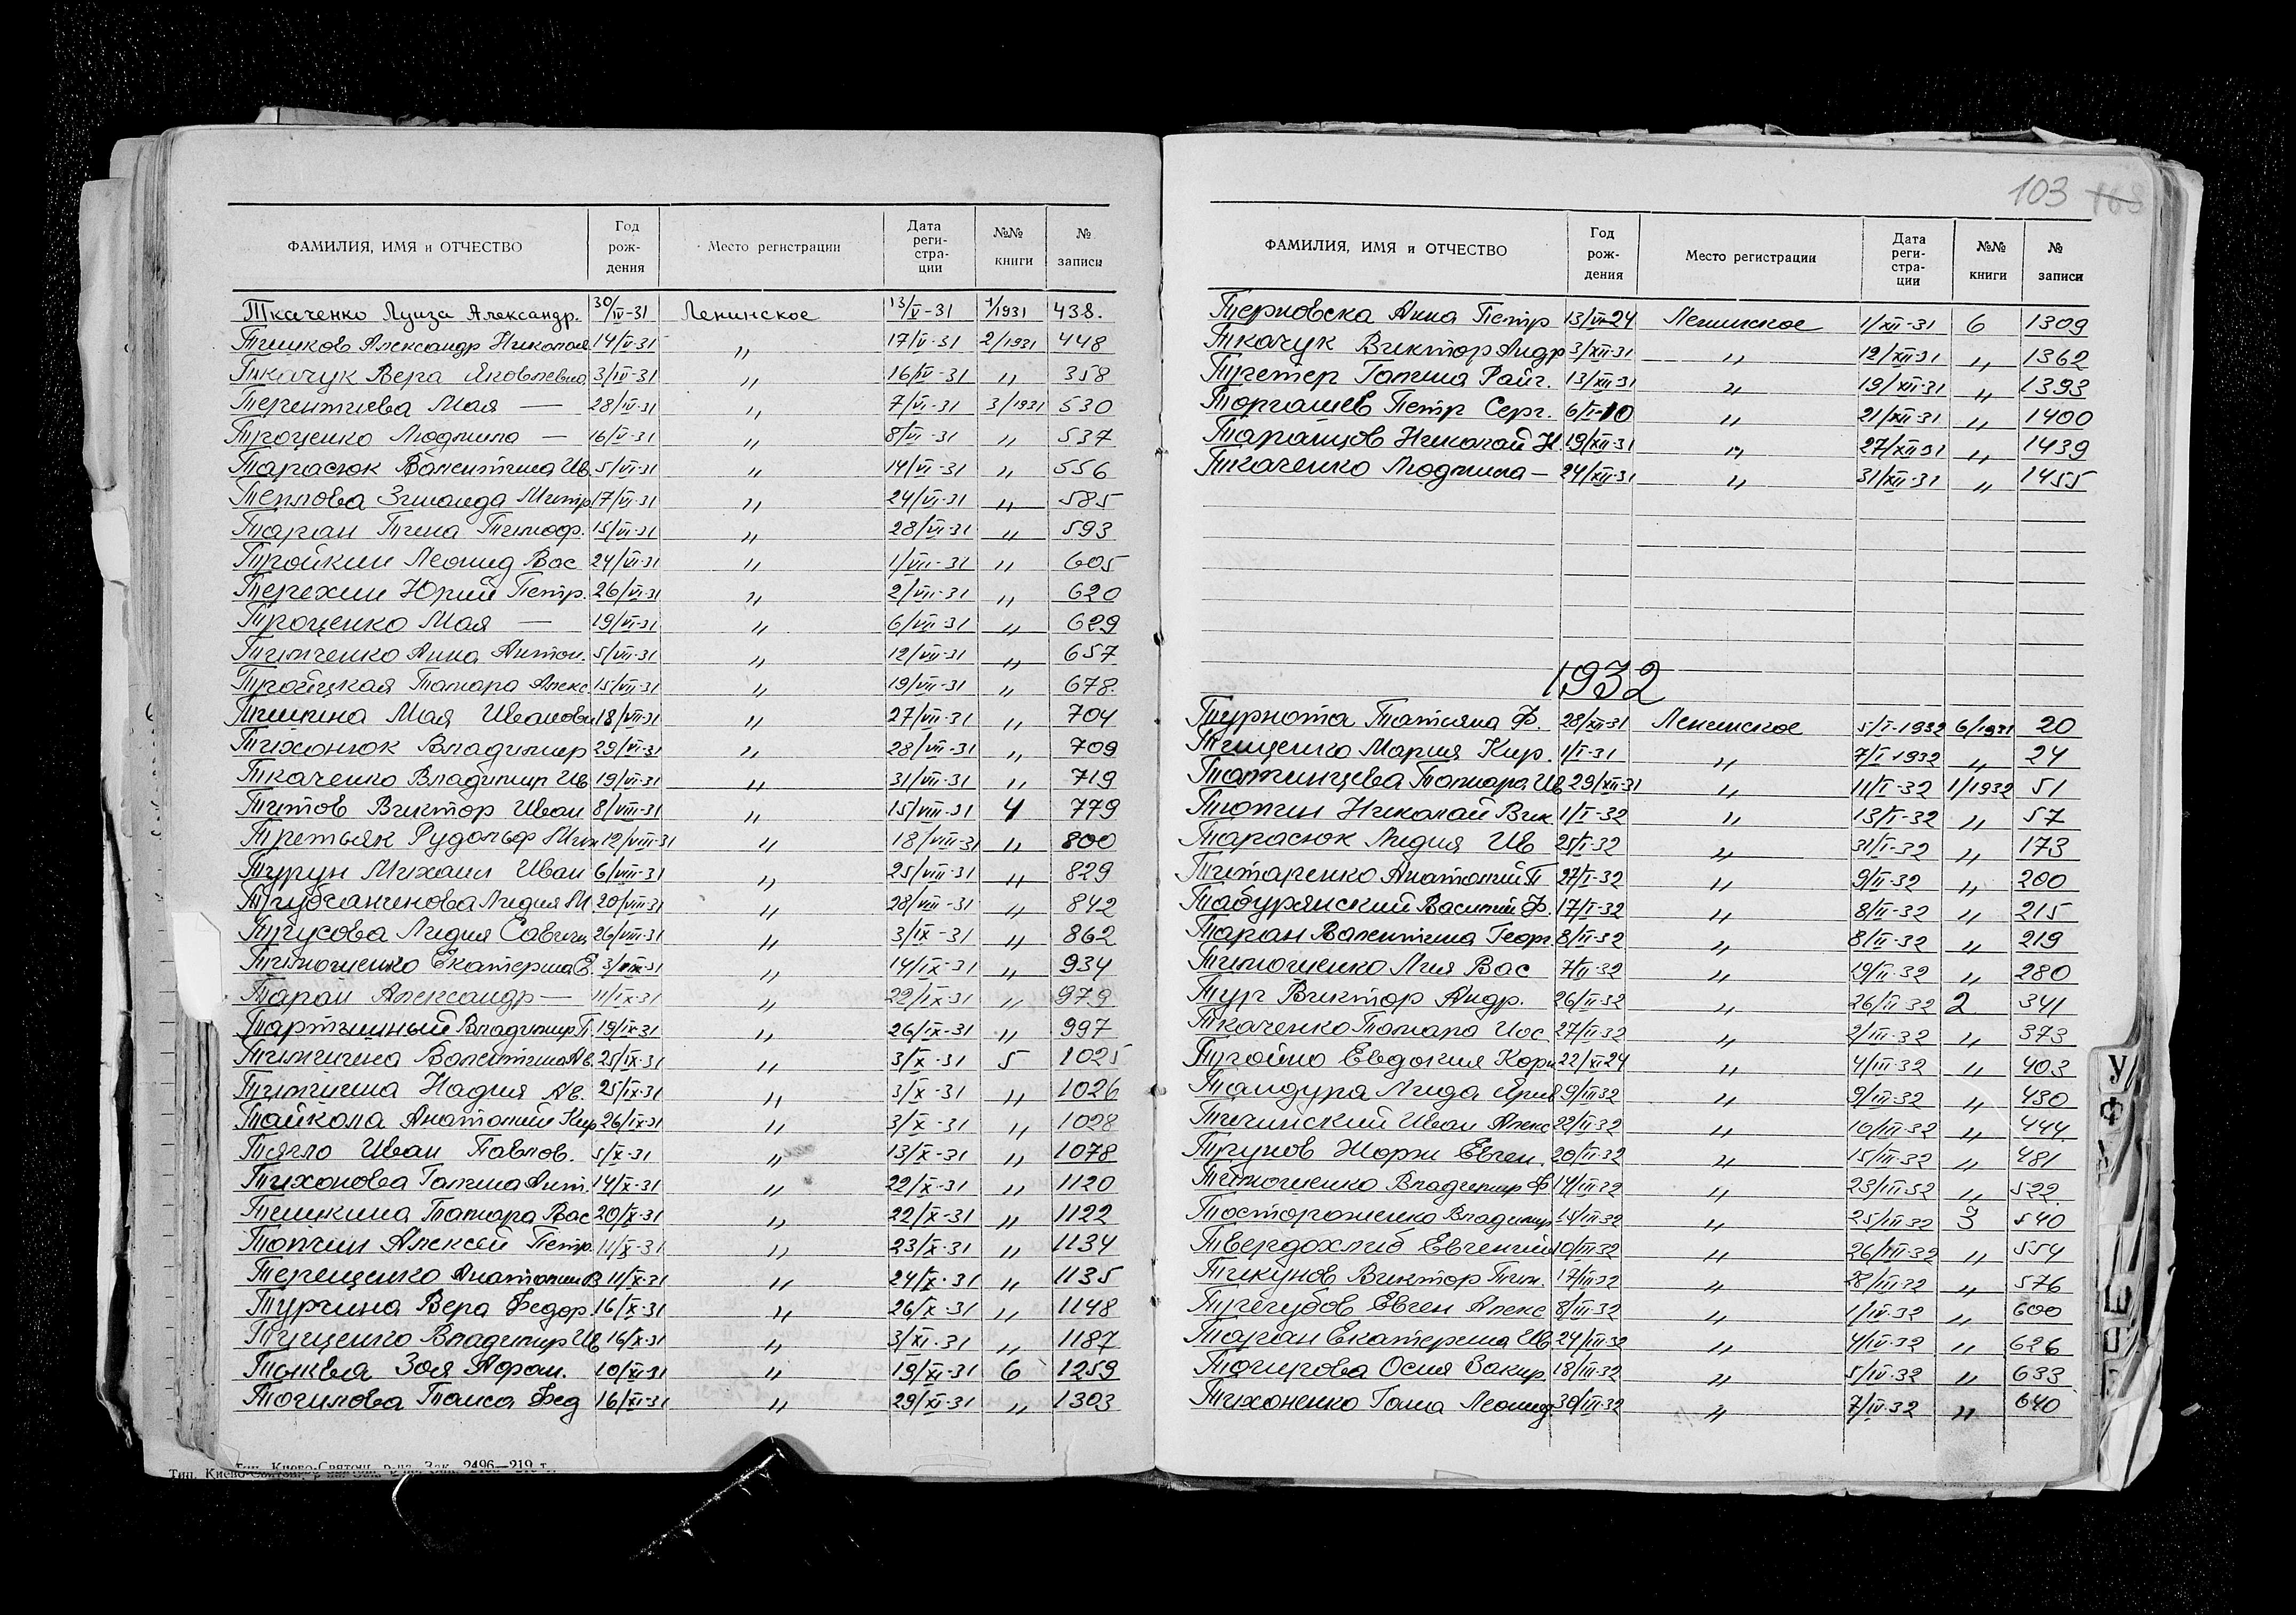 ФАМИЛИЯ, ИМЯ и ОТЧЕСТВО Год рож-дения Место регистрации Дата реги-стра-ции №№ книги № записи
Ткаченко Луиза Александр. 30/IV-31 Ленинское 13/V-31 1/1931 438.
Тишков Александр Николая 14/V-31 " 17/V-31 2/1931 448
Ткачук Вера Яковлевна 3/IV-31 " 16/IV-31 " 358
Терентиева Мая — 28/IV-31 " 7/VI-31 3/1931 530
Троценко Людмила — 16/V-31 " 8/VI-31 " 537
Тарасюк Валентина Ив. 5/VI-31 " 14/VI-31 " 556
Теплова Зинаида Митр 17/VI-31 " 24/VI-31 " 585
Таран Тина Тимоф. 15/VI-31 " 28/VI-31 " 593
Тройкин Леонид Вас 24/VI-31 " 1/VII-31 " 605
Терехин Юрий Петр. 26/VI-31 " 2/VII-31 " 620
Троценко Мая — 19/VI-31 " 6/VII-31 " 629
Тимченко Анна Антон. 5/VII-31 " 12/VII-31 " 657
Тройцкая Тамара Алекс 15/VII-31 " 19/VII-31 " 678.
Тишкина Мая Ивановн 18/VII-31 " 27/VII-31 " 704
Тихонюк Владимир 29/VI-31 " 28/VII-31 " 709
Ткаченко Владимир Ив 19/VI-31 " 31/VII-31 " 719
Титов Виктор Иван 8/VIII-31 " 15/VIII-31 4 779
Третьяк Рудольф Мих 12/VIII-31 " 18/VIII-31 " 800
Турун Михаил Иван 6/VIII-31 " 25/VIII-31 " 829
Лидия М. 20/VIII-31 " 28/VIII-31 " 842
Трусова Лидия Савич 26/VIII-31 " 3/IX-31 " 862
Тимошенко Екатерина Е. 3/IX-31 " 14/IX-31 " 934
Таран Александр — 11/IX-31 " 22/IX-31 " 979
Партишный Владимир П. 19/IX-31 " 26/IX-31 " 997
Валентина Ав. 25/IX-31 " 3/X-31 5 1025
Надия Ав. 25/IX-31 " 3/X-31 " 1026
Тайкола Анатолий Кир 26/IX-31 " 3/X-31 " 1028
Тягло Иван Павлов. 5/X-31 " 13/X-31 " 1078
Тихонова Галина Ант. 14/X-31 " 22/X-31 " 1120
Тишкина Тамара Вас 20/X-31 " 22/X-31 " 1122
Топчин Алексей Петр. 11/X-31 " 23/X-31 " 1134
Терещенко Анатолий В 11/X-31 " 24/X-31 " 1135
Турчина Вера Федор. 16/X-31 " 26/X-31 " 1148
Тищенко Владимир Ив 16/X-31 " 3/XI-31 " 1187
Зоя Афан. 10/XI-31 " 19/XI-31 6 1259
Точилова Таиса Фед 16/XI-31 " 29/XI-31 " 1303
Тип. Киево-Святош. р-на. Зак. 2496—219 т.
103 168
ФАМИЛИЯ, ИМЯ и ОТЧЕСТВО Год рож-дения Место регистрации Дата реги-стра-ции №№ книги № записи
Терновска Анна Петр 13/VII-24 Ленинское 1/XII-31 6 1309
Ткачук Виктор Андр 3/XII-31 " 12/XII-31 " 1362
Третер Галина Райг. 13/XII-31 " 19/XII-31 " 1393
Торгашев Петр Серг. 6/I-10 " 21/XII-31 " 1400
Таранцов Николай Н. 19/XII-31 " 27/XII-31 " 1439
Ткаченко Людмила — 24/XII-31 " 31/XII-31 " 1455
1932
Турнота Татьяна Ф. 28/XII-31 Ленинское 5/I-1932 6/1931 20
Тищенко Мария Кир. 1/I-31 " 7/I-1932 " 24
Татинцева Тамара Ив 29/XII-31 " 11/I-32 1/1932 51
Тюпин Николай Вик 1/I-32 " 13/I-32 " 57
Тарасюк Лидия Ив 25/I-32 " 31/I-32 " 173
Титаренко Анатолий П 27/I-32 " 9/II-32 " 200
Табурянский Василий Ф. 17/I-32 " 8/II-32 " 215
Таран Валентина Георг. 8/II-32 " 8/II-32 " 219
Тимошенко Лия Вас 7/II-32 " 19/II-32 " 280
Тург Виктор Андр. 26/II-32 " 26/II-32 2 341
Ткаченко Тамара Иос. 27/II-32 " 2/III-32 " 373
Тугойно Евдокия Корн 22/XI-24 " 4/III-32 " 403
Тандура Лида 9/III-32 " 9/III-32 " 430
Тичинский Иван Алекс 22/II-32 " 10/III-32 " 444.
Трунов Жорж Евген. 20/II-32 " 15/III-32 " 481
Тимошенко Владимир Ф 14/III-32 " 23/III-32 " 522
Тостороженко Владимир 15/III-32 " 25/III-32 3 540
Твердохлиб Евгений 10/III-32 " 26/III-32 " 554
Тикунов Виктор Тим. 17/III-32 " 28/III-32 " 576
Тугегубов Евген Алекс 8/III-32 " 1/IV-32 " 600
Таран Екатерина Ив 24/III-32 " 4/IV-32 " 626
Тагирова Осия Закир. 18/III-32 " 5/IV-32 " 633
Тихоненко Гама Леонид. 30/III-32 " 7/IV-32 " 640